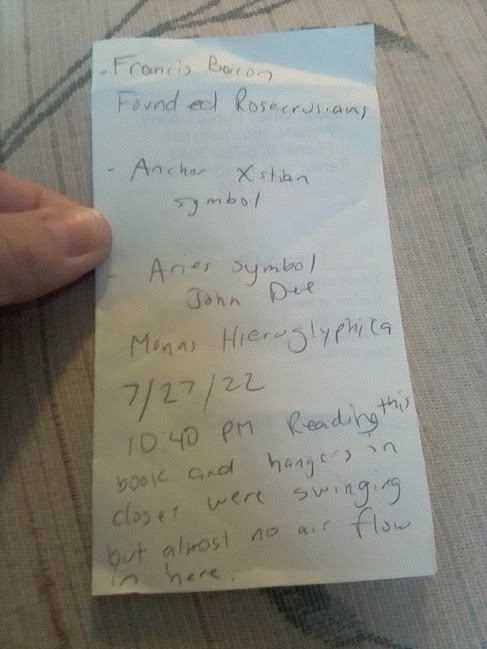 - Francis Bacon
Founded Rosecrusians
- Anchor Xstian
symbol
- Aries symbol
John Dee
Monas Hieroglyphica
7/27/22
10:40 PM Reading this
book and hangers in
closet were swinging
but almost no air flow
in here.